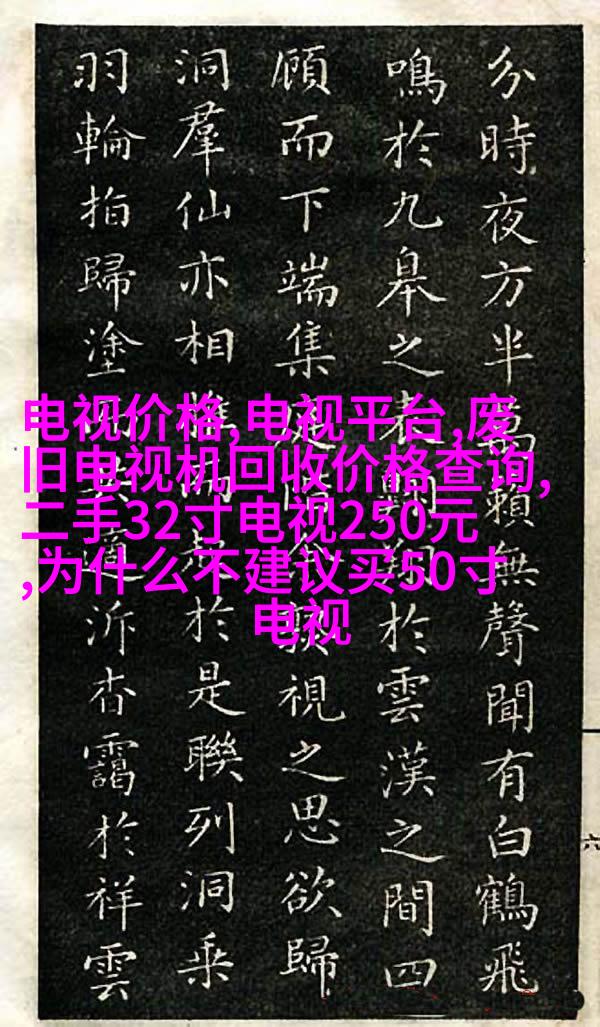 分時夜方半萬籟無聲聞有白鶴飛
鳴於九皋之表翱翔於雲漢之間四
顧而下端集視之思欲歸
洞羣仙亦相於是聯列洞乘
羽輪拍歸塗泝杳靄於祥雲
电视价格,电视平台,废
旧电视机回收价格查询,
二手32寸电视250元
,为什么不建议买50寸
电视
六